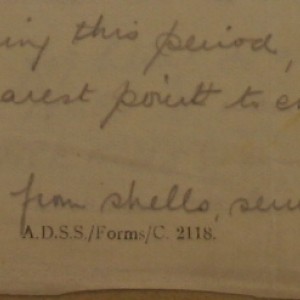 ing this period,
arest point to e
from shells, seu
A.D.S.S./Forms/C. 2118.